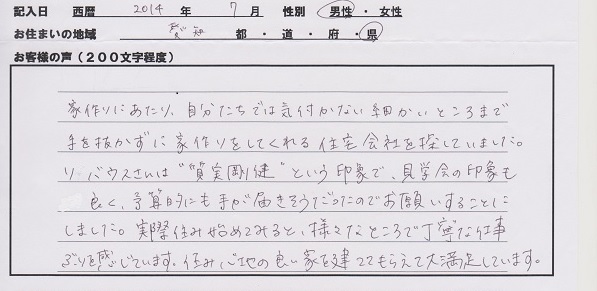 記入日 西暦 2014 年 7 月 性別 男性 ・ 女性
お住まいの地域 愛知 都 ・ 道 ・ 府 ・ 県
お客様の声（200文字程度）
家作りにあたり、自分たちでは気付かない細かいところまで
手を抜かずに家作りをしてくれる住宅会社を探していました。
リバウスさんは"質実剛健"という印象で、見学会の印象も
良く、予算的にも手が届きそうだったのでお願いすることに
しました。実際住み始めてみると、様々なところで丁寧な仕事
ぶりを感じています。住み心地の良い家を建ててもらえて大満足しています。